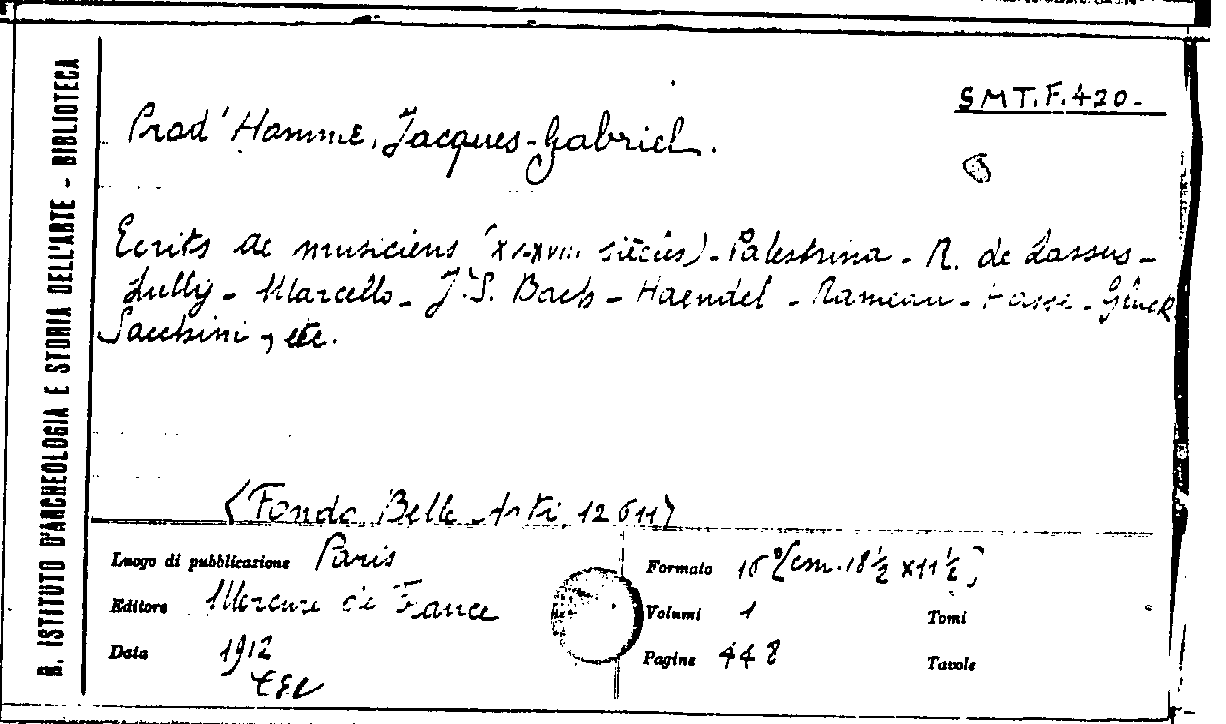 R. ISTITUTO D'ARCHEOLOGIA E STORIA DELL'ARTE - BIBLIOTECA
SMT.F.420.
Prod'Homme, Jacques-Gabriel.
Ecrits de musiciens (XV-XVIII siècles) - Palestrina - R. de Lassus -
Lully - Marcello - J.S. Bach - Haendel - Rameau - Hasse - Gluck
Sacchini, etc.
(Fondo Belle Arti 12611)
Luogo di pubblicazione Paris
Formato 16º (cm. 18 ½ x 11 ½)
Editore Mercure de France
Volumi 1 Tomi
Data 1912
Pagine 448 Tavole